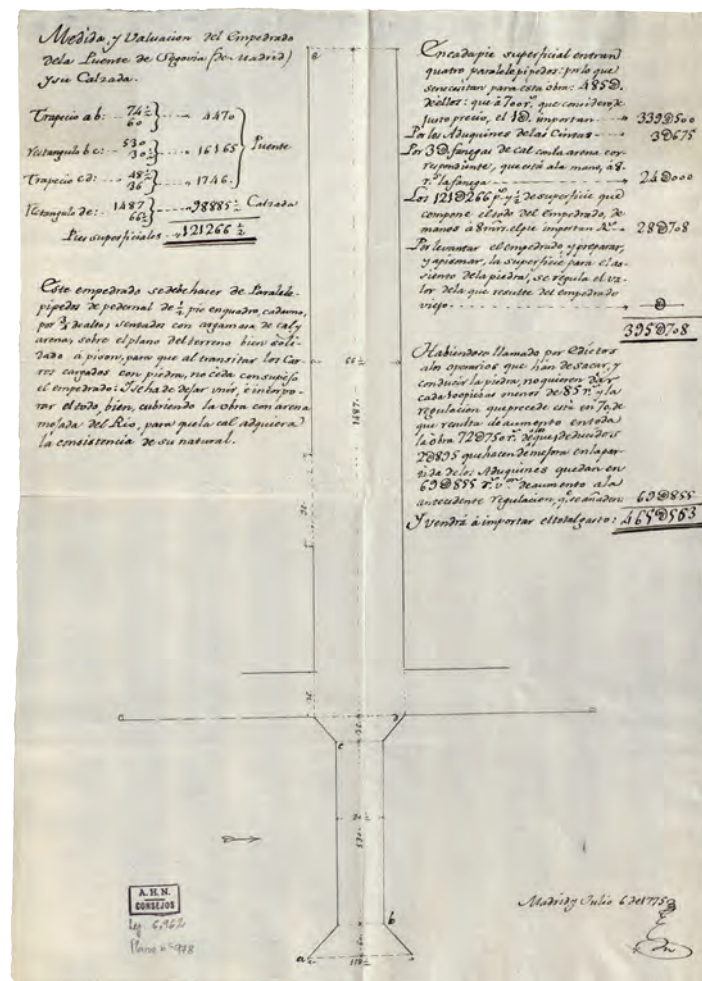 Medida, y Valuacion del Empedrado
dela Puente de Segovia (de Madrid)
y su Calzada.
Trapecio ab: - 74½ 60 } - - - → 4470
Rectangulo bc: - 530 30½ } - - - → 16165 Puente
Trapecio cd: - - 48½ 36 } - - - → 1746.
Rectangulo de: - 1487 66½ } - - - - 98885½ Calzada
Pies superficiales - - 121266½
Este empedrado se debe hacer de Paralele-
pipedos de pedernal de ½ pie en quadro, cada uno,
por ¾ de alto, sentados con argamasa de cal y
arena, sobre el plano del terreno bien soli-
dado à pison, para que al transitar los Car-
ros cargados con piedra, no ceda con su peso
el empedrado: I se ha de dejar unir, è incorpo-
rar el todo, bien, cubriendo la obra con arena
mojada del Rio, para que la cal adquiera
la consistencia de su natural.
En cada pie superficial entran
quatro paralelepipedos: por lo que
se necesitan para esta obra: 485D.
de ellos: que à 700 rs. que considero de
justo precio, el 1D. importan - - - - 339D500
Por los Aduquines de las Cintas - - - - 3D675
Por 3D. fanegas de Cal con la arena cor-
respondiente, que està ala mano, à 8.
rs. la fanega - - - - 24D000
Los 121D266 ps. y ½ de superficie que
compone el todo del Empedrado, de
manos à 8 mrs. el pie importan Rs. - - 28D708
Por levantar el empedrado y preparar,
y apismar, la superficie para el as-
siento dela piedra, se regula el va-
lor dela que resulte del empedrado
viejo - - - - D
395D708
Habiendose llamado por Edictos
alos operarios que hán de sacar, y
conducir la piedra, no quieren dar
cada 100 piezas menor de 85 rs. y la
regulacion que precede està en 70, de
que resulta de aumento en toda
la obra 72D750 rs. de que, deducidos
2D895 que hacen de mejora en la par-
tida de los Aduquines quedan en
69D855 rs. vn. de aumento ala
antecedente regulacion, q. se añaden: 69D855
Y vendrà à importar el total gasto: 465D563
e
66½
1487.
36
d
36
c
30½
530
b
60
a
Madrid y Julio 6 de 1775
A.H.N.
CONSEJOS
Leg. 6,962
Plano nº 978